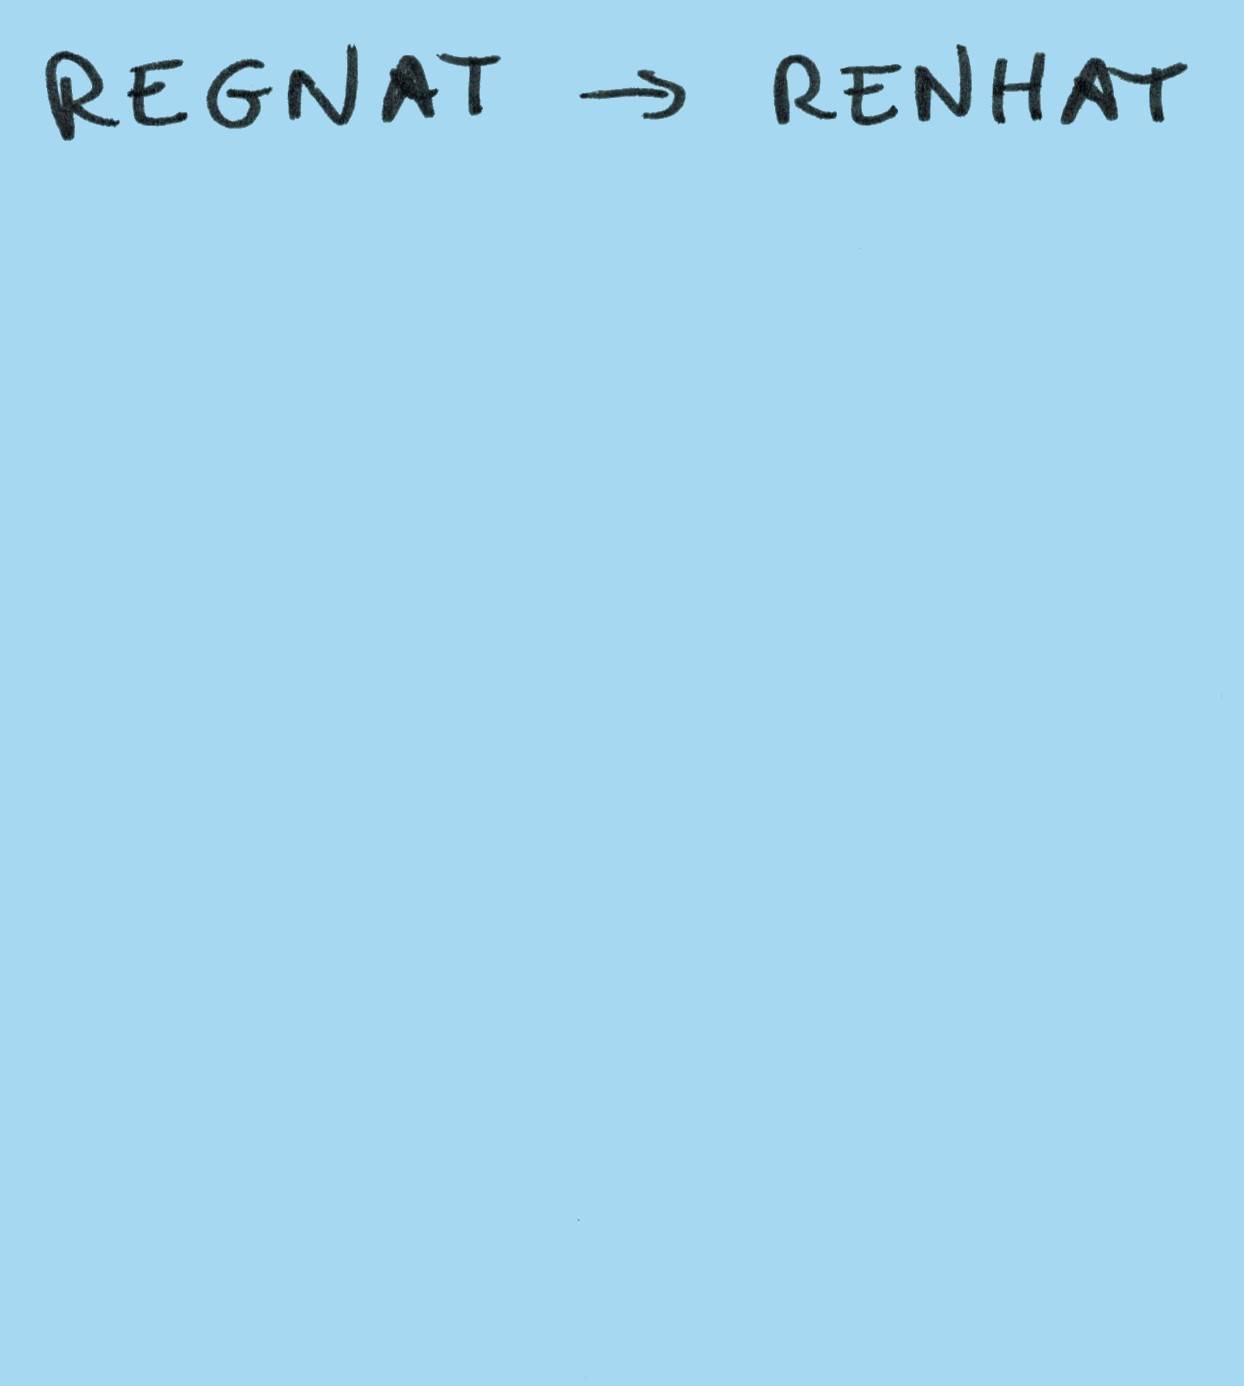 REGNAT → RENHAT